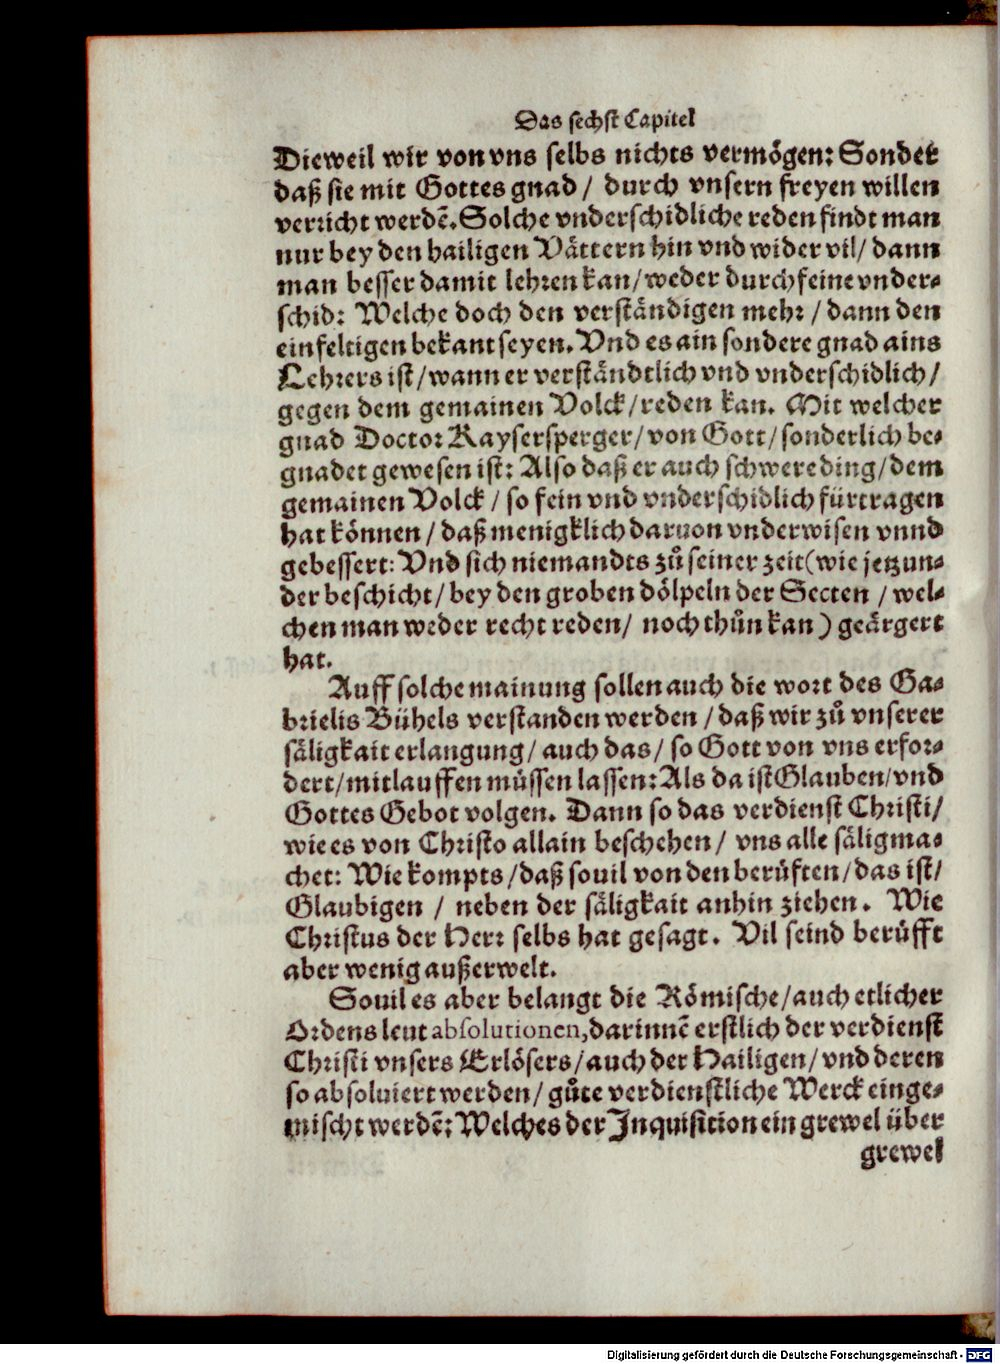 Das sechst Capitel
Dieweil wir von vns selbs nichts vermögen: Sonder
daß sie mit Gottes gnad / durch vnsern freyen willen
verricht werdē. Solche vnderschidliche reden findt man
nur bey den hailigen Vättern hin vnd wider vil / dann
man besser damit lehren kan / weder durch feine vnder-
schid: Welche doch den verständigen mehr / dann den
einfeltigen bekant seyen. Vnd es ain sondere gnad ains
Lehrers ist / wann er verständtlich vnd vnderschidlich /
gegen dem gemainen Volck / reden kan. Mit welcher
gnad Doctor Kaysersperger / von Gott / sonderlich be-
gnadet gewesen ist: Also daß er auch schwere ding / dem
gemainen Volck / so fein vnd vnderschidlich fürtragen
hat können / daß menigklich daruon vnderwisen vnnd
gebessert: Vnd sich niemandts zů seiner zeit (wie jetzun-
der beschicht / bey den groben dölpeln der Secten / wel-
chen man weder recht reden / noch thůn kan) geärgert
hat.
Auff solche mainung sollen auch die wort des Ga-
brielis Bühels verstanden werden / daß wir zů vnserer
säligkait erlangung / auch das / so Gott von vns erfor-
dert / mitlauffen müssen lassen: Als da ist Glauben / vnd
Gottes Gebot volgen. Dann so das verdienst Christi /
wie es von Christo allain beschehen / vns alle säligma-
chet: Wie kompts / daß souil von den berüfften / das ist /
Glaubigen / neben der säligkait anhin ziehen. Wie
Christus der Herr selbs hat gesagt. Vil seind berüfft
aber wenig außerwelt.
Souil es aber belangt die Römische / auch etlicher
Ordens leut absolutionen, darinnē erstlich der verdienst
Christi vnsers Erlösers / auch der Hailigen / vnd deren
so absoluiert werden / gůte verdienstliche Werck einge-
mischt werdē: Welches der Inquisition ein grewel über
grewel
Digitalisierung gefördert durch die Deutsche Forschungsgemeinschaft - DFG